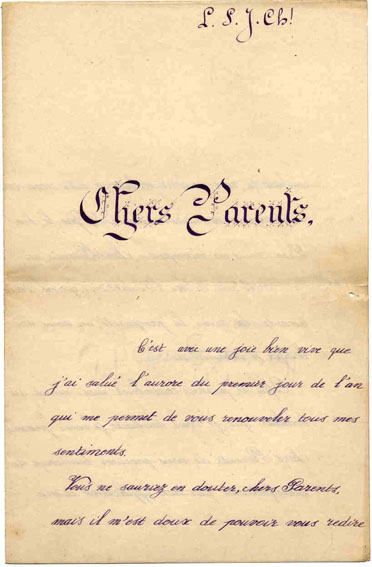 L. S. J. Ch!
Chers Parents,
C'est avec une joie bien vive que
j'ai salué l'aurore du premier jour de l'an
qui me permet de vous renouveler tous mes
sentiments.
Vous ne sauriez en douter, chers Parents,
mais il m'est doux de pouvoir vous redire